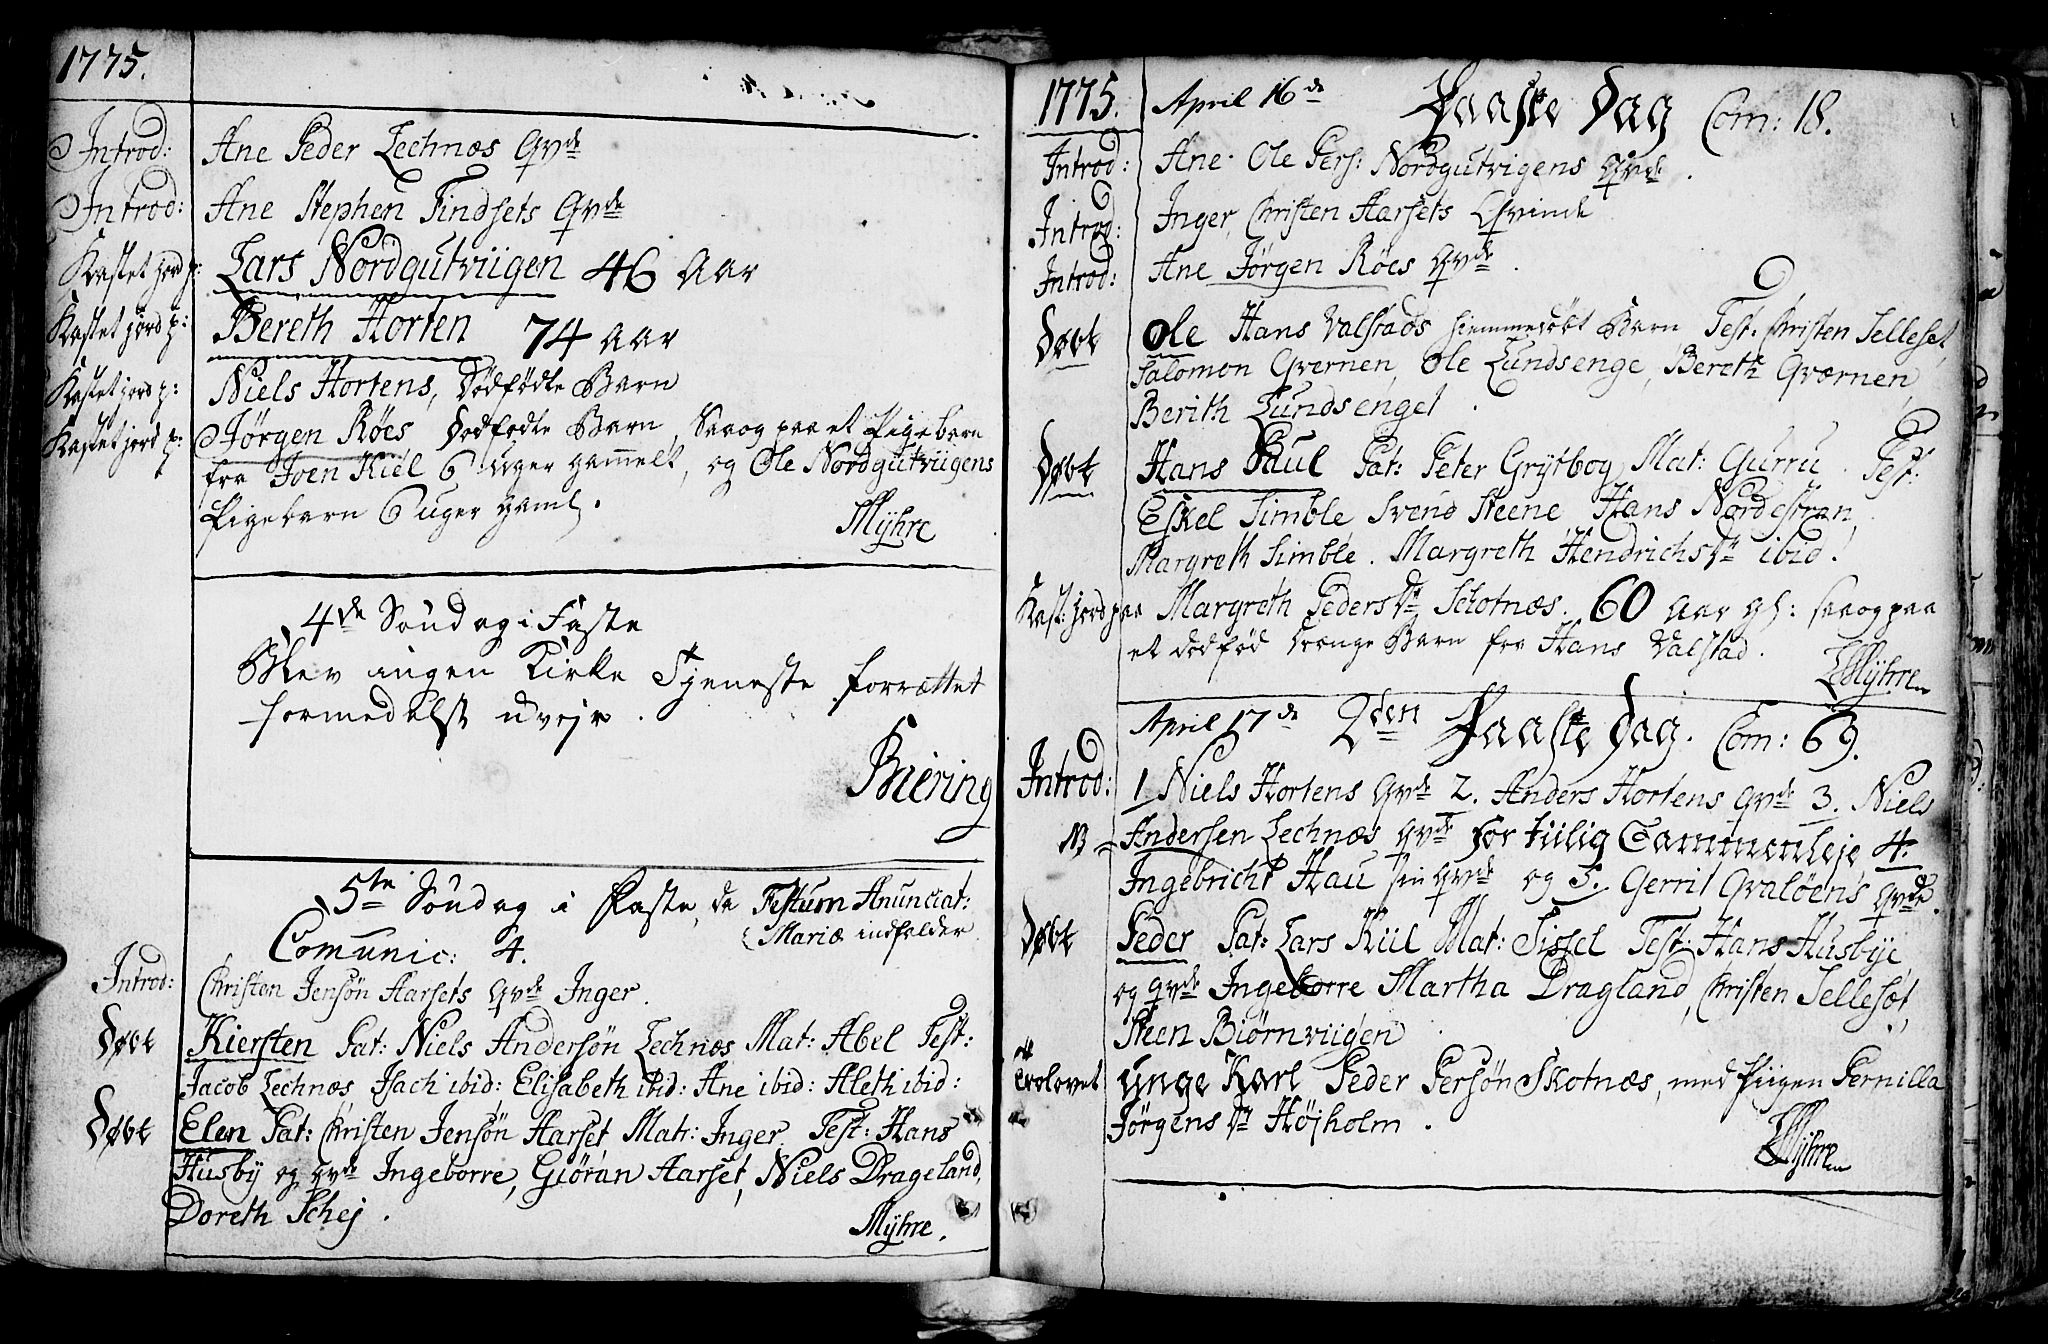 1775.
Introd: Ane Peder Lechnæs Qvde
Introd: Ane Stephen Findsets Qvde
Kastet jord p: Lars Nordgutviigen 46 Aar
Kastet jord p: Bereth Horten 74 Aar
Kastet jord p: Niels Hortens, dödfödte Barn
Kastet jord p: Jörgen Röes dödfödte Barn, Saa og paa et Pigebarn
fra Joen Kiel 6 uger gammelt, og Ole Nordgutviigens
Pigebarn 6 uger gaml.
Myhre
4de Söndag i Faste
Blev ingen Kirke Tjeneste forrættet
formedelst uvejr.
Biering
5te Söndag i Faste, da Festum Anunciat:
Mariæ indfalder
Comunic: 4.
Introd: Christen Jensön Aarsets Qvde Inger.
Döbt Kiersten Pat: Niels Andersön Lechnæs Mat: Abel Test:
Jacob Lechnæs, Isach ibid: Elisabeth ibid: Ane ibid: Aleth ibid:
Döbt Elen Pat: Christen Jensön Aarset Matr: Inger. Test: Hans
Husby og Qvde Ingeborre, Giöran Aarset, Niels Drageland,
Doreth Schej.
Myhre.
1775. April 16de Paaske Dag Com: 18.
Introd: Ane Ole Pers: Nordgutvigens Qvde.
Introd: Inger, Christen Aarsets Qvinde
Introd: Ane Jörgen Röes Qvde.
Döbt Ole Hans Valstads hiemmedöbt Barn Test: Christen Selleset,
Salomon Qvernen, Ole Lundsenge, Bereth Qværnen,
Berith Lundsenget.
Döbt Hans Paul Pat: Peter Grytbog Mat: Gurru. Test:
Eskel Simble Svend Steene, Hans Nordstran,
Margreth Simble. Margreth Hendrichsdr ibid.
Kast: jord paa Margreth Pedersdr Schotnæs. 60 Aar gl: saa og paa
et dödföd drænge Barn fra Hans Valstad.
Myhre
April 17de 2den Paaske Dag. Com: 69.
Introd: 1 Niels Hortens Qvde 2. Anders Hortens Qvde 3. Niels
NB = Andersen Lechnæs Qvde for tiilig Sammenleje, 4.
Ingebricht Hau sin Qvde og 5. Gerrit Qvalöens Qvde.
Döbt Peder Pat: Lars Kiil Mat: Sissel Test: Hans Husbye,
og Qvde Ingeborre Martha Dragland, Christen Sellesæt,
Steen Biörnviigen.
Trolovet unge Karl Peder Persön Skotnæs, med Piigen Pernilla
Jörgensdr Höjholm.
Myhre